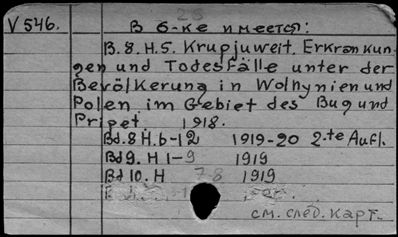 V 546.
В б-ке имеется:
B. 8. H. 5. Krupjuweit. Erkrankun-
gen und Todesfälle unter der
Bevölkerung in Wolhynien und
Polen im Gebiet des Bug und
Pripet. 1918.
Bd. 8 H. 6-12 1919-20 2.te Aufl.
Bd 9. H 1-9 1919
Bd 10. H 7-8 1919
см. след. карт.